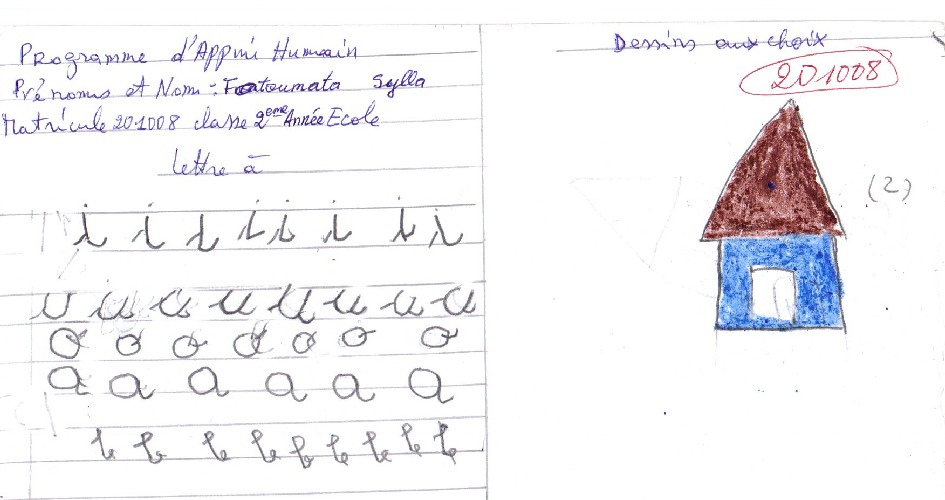 Programme d'Appui Humain
Prénoms et Nom : Fatoumata Sylla
Matricule 201008 classe 2eme Année Ecole
lettre à
i i i i i i i i
u u u u u u u u
o o o o o o o
a a a a a a
Dessins aux choix
201008
(2)